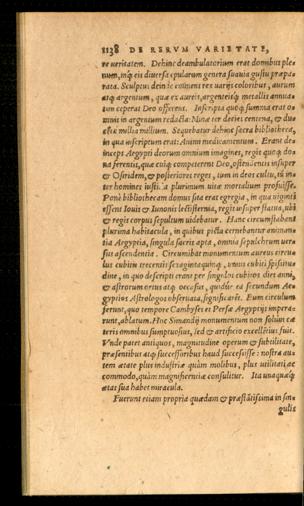 1138 DE RERVM VARIETATE,
re ueritatem. Dehinc deambulatorium erat domibus ple-
num, inq́; eis diuersa epularum genera suauia gustu præpa-
rata. Sculptus dein
coloribus, aurum
atq́; argentum, quæ ex aureis, argenteisq́; metallis annua-
tim ceperat Deo offerens. Inscripta quoq́; summa erat o-
mnis in argentum redacta: Minæ ter decies centena, & duo
millia millium. Sequebatur dehinc sacra bibliotheca,
in qua inscriptum erat: Animi medicamentum. Erant de-
inceps Aegypti deorum omnium imagines, regis quoq́; do-
na ferentis, quæ cuiq́; competerent Deo, ostendentis insuper
& Osiridem, & posteriores reges, tum in deos cultu, tum in-
ter homines iusti.a plurimum uitæ mortalium profuisse.
Ponè bibliothecam domus sita erat egregia, in qua uiginti
essent Iouis & Iunonis lectisternia, regis insuper statua, ubi
& regis corpus sepultum uidebatur. Hanc circumstabant
plurima habitacula, in quibus picta cernebantur animan-
tia Aegyptia, singula sacris apta, omnia sepulchrum uer-
sus ascendentia. Circumibat monumentum aureus circu-
lus cubitis trecentis sexagintaquinq́;, unius cubiti spissitu-
dine, in quo descripti erant per singulos cubitos dies anni,
& astrorum ortus atq́; occasus, quidue ea secundum Ae-
gyptios Astrologos obseruata, significarēt. Eum circulum
ferunt, quo tempore Cambyses et Persæ Aegyptijs impera-
runt, ablatum. Hoc Simandij monumentum non solùm cæ-
teris omnibus sumptuosius, sed & artificio excellētius fuit.
Vnde patet antiquos, magnitudine operum & subtilitate,
præsentibus atq́; successoribus haud successisse: nostra au-
tem ætate plus industriæ quàm molibus, plus utilitati, ac
commodo, quàm magnificentiæ consulitur. Ita unaquæq́;
ætas sua habet miracula.
Fuerunt etiam propria quædam & præstātissima in sin-
gulis